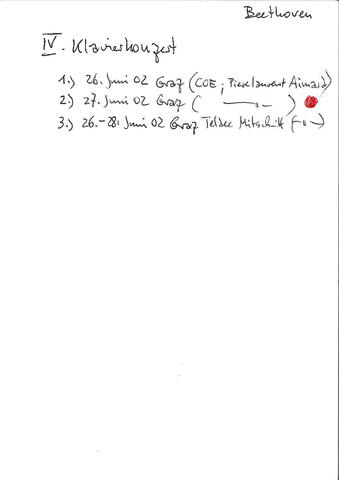 Beethoven
IV. Klavierkonzert
1.) 26. Juni 02 Graz (COE; Pierre Laurent Aimard)
2.) 27. Juni 02 Graz ( —"— )
3.) 26.-28. Juni 02 Graz Teldec Mitschnitt (-"-)